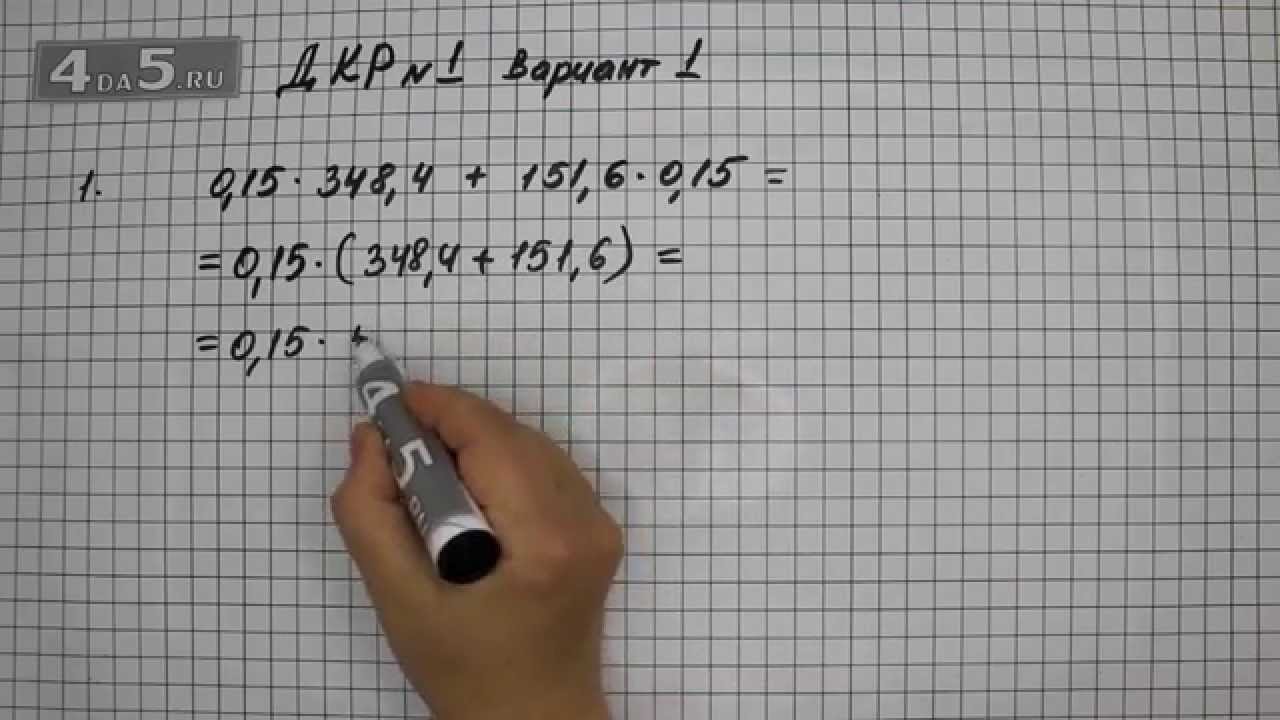 4DA5.RU
ДКР № 1 Вариант 1
1. 0,15 · 348,4 + 151,6 · 0,15 =
= 0,15 · (348,4 + 151,6) =
= 0,15 ·